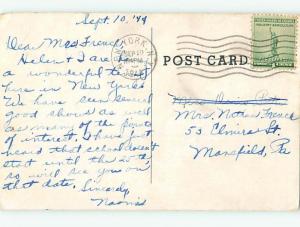 Sept. 10, '44
Dear Mrs French,
Helen & I are having
a wonderful time
here in New York.
We have seen several
good shows as well
as many of the points
of interest. I have just
heard that school doesn't
start until the 20th,
so will see you on
that date. Sincerely,
Naomi
NEW YORK, N.Y.
SEP 10
POST CARD
Mrs. French
53 Elmira St
Mansfield, Pa